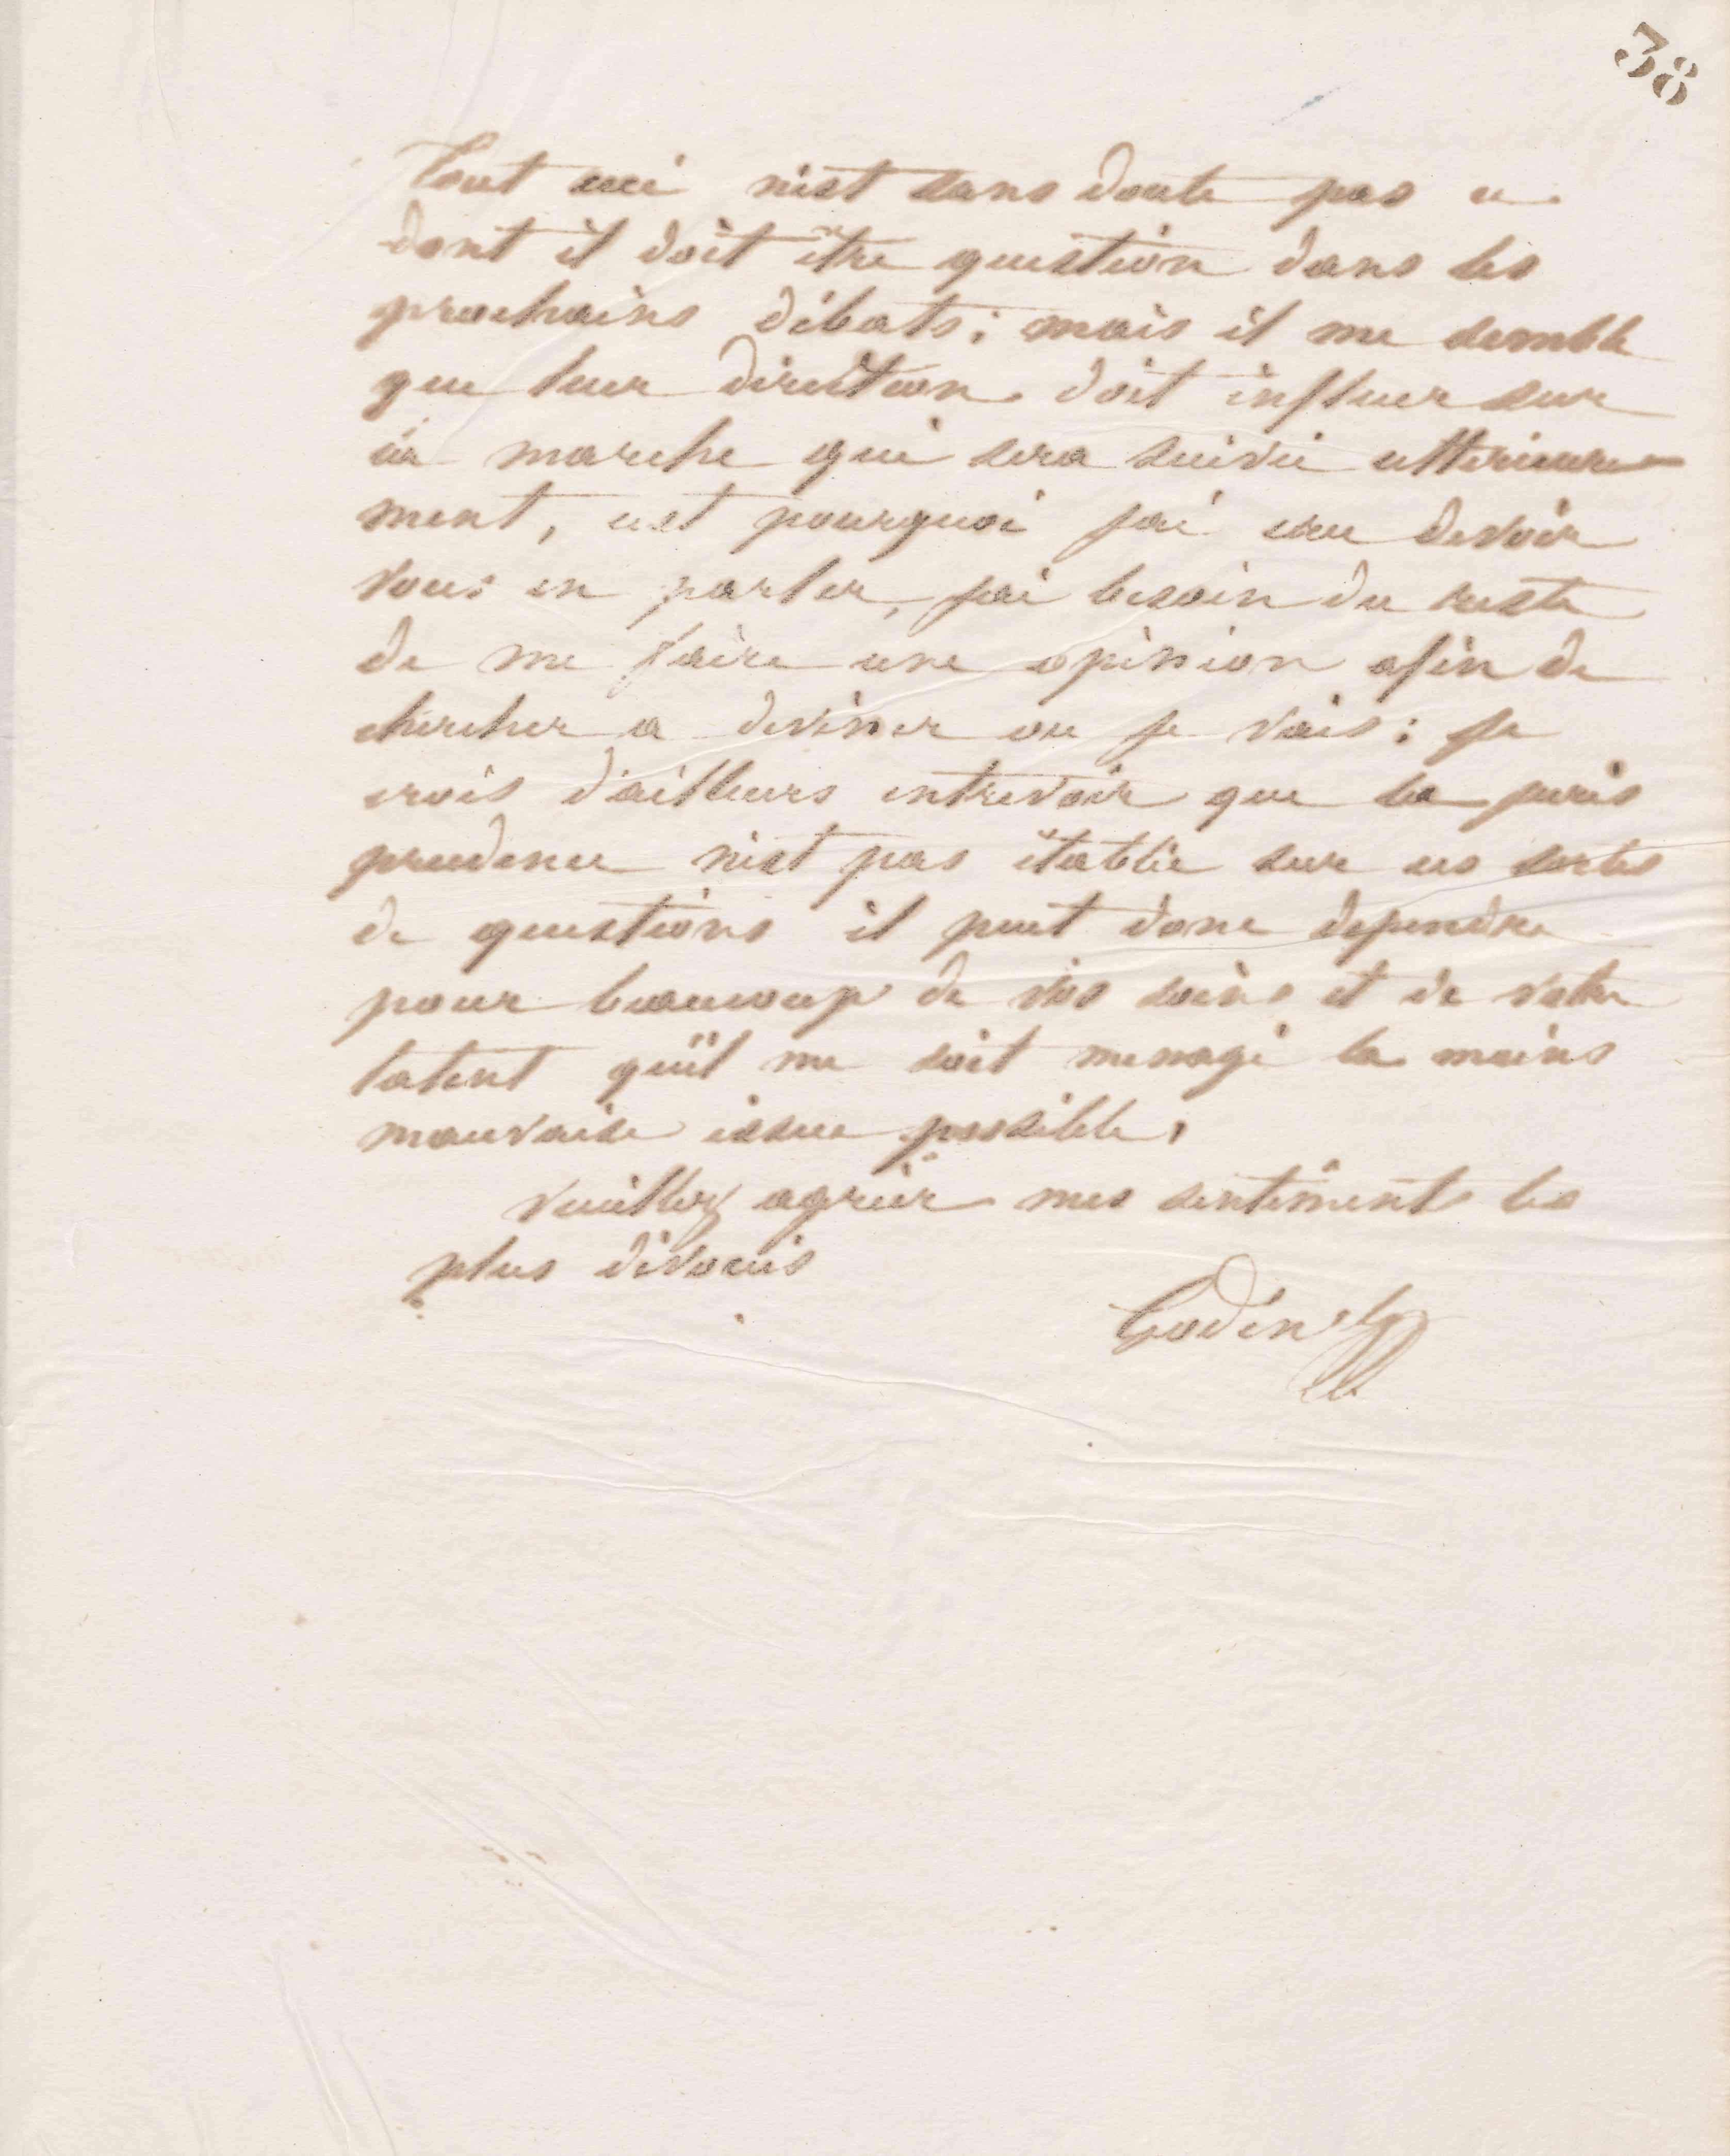 38
Tout ceci n'est sans doute pas ce
dont il doit être question dans les
prochains débats; mais il me semble
que leur direction doit influer sur
la marche qui sera suivie ultérieure
ment, c'est pourquoi j'ai cru devoir
vous en parler, j'ai besoin du reste
de me faire une opinion afin de
chercher a deviner ou je vais: je
crois d'ailleurs entrevoir que la juris
prudence n'est pas établie sur ces sortes
de questions il peut donc dependre
pour beaucoup de vos soins et de votre
talent qu'il me soit menagé la moins
mauvaise issue possible,
Veuillez agréer mes sentiments les
plus dévoués
Godin